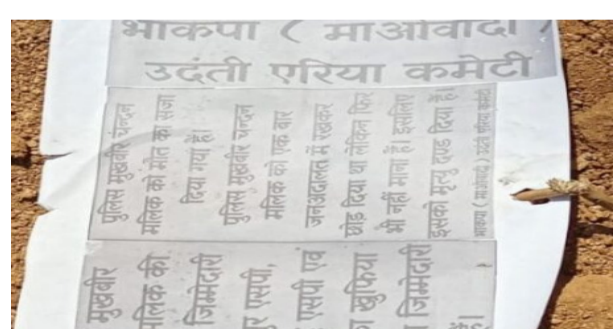 भाकपा ( माओवादी )
उदंती एरिया कमेटी
पुलिस मुखबीर चन्दन
मलिक को मौत का सजा
दिया गया है।
पुलिस मुखबीर चन्दन
मलिक को एक बार
जनअदालत में रखकर
छोड़ दिया था लेकिन फिर
भी नहीं माना है। इसलिए
इसको मृत्यु दण्ड दिया है।
भाकपा ( माओवादी ) उदंती एरिया कमेटी
मुखबीर
मलिक की
जिम्मेदारी
एसपी,
एसपी एवं
खुफिया
जिम्मेदारी
है।